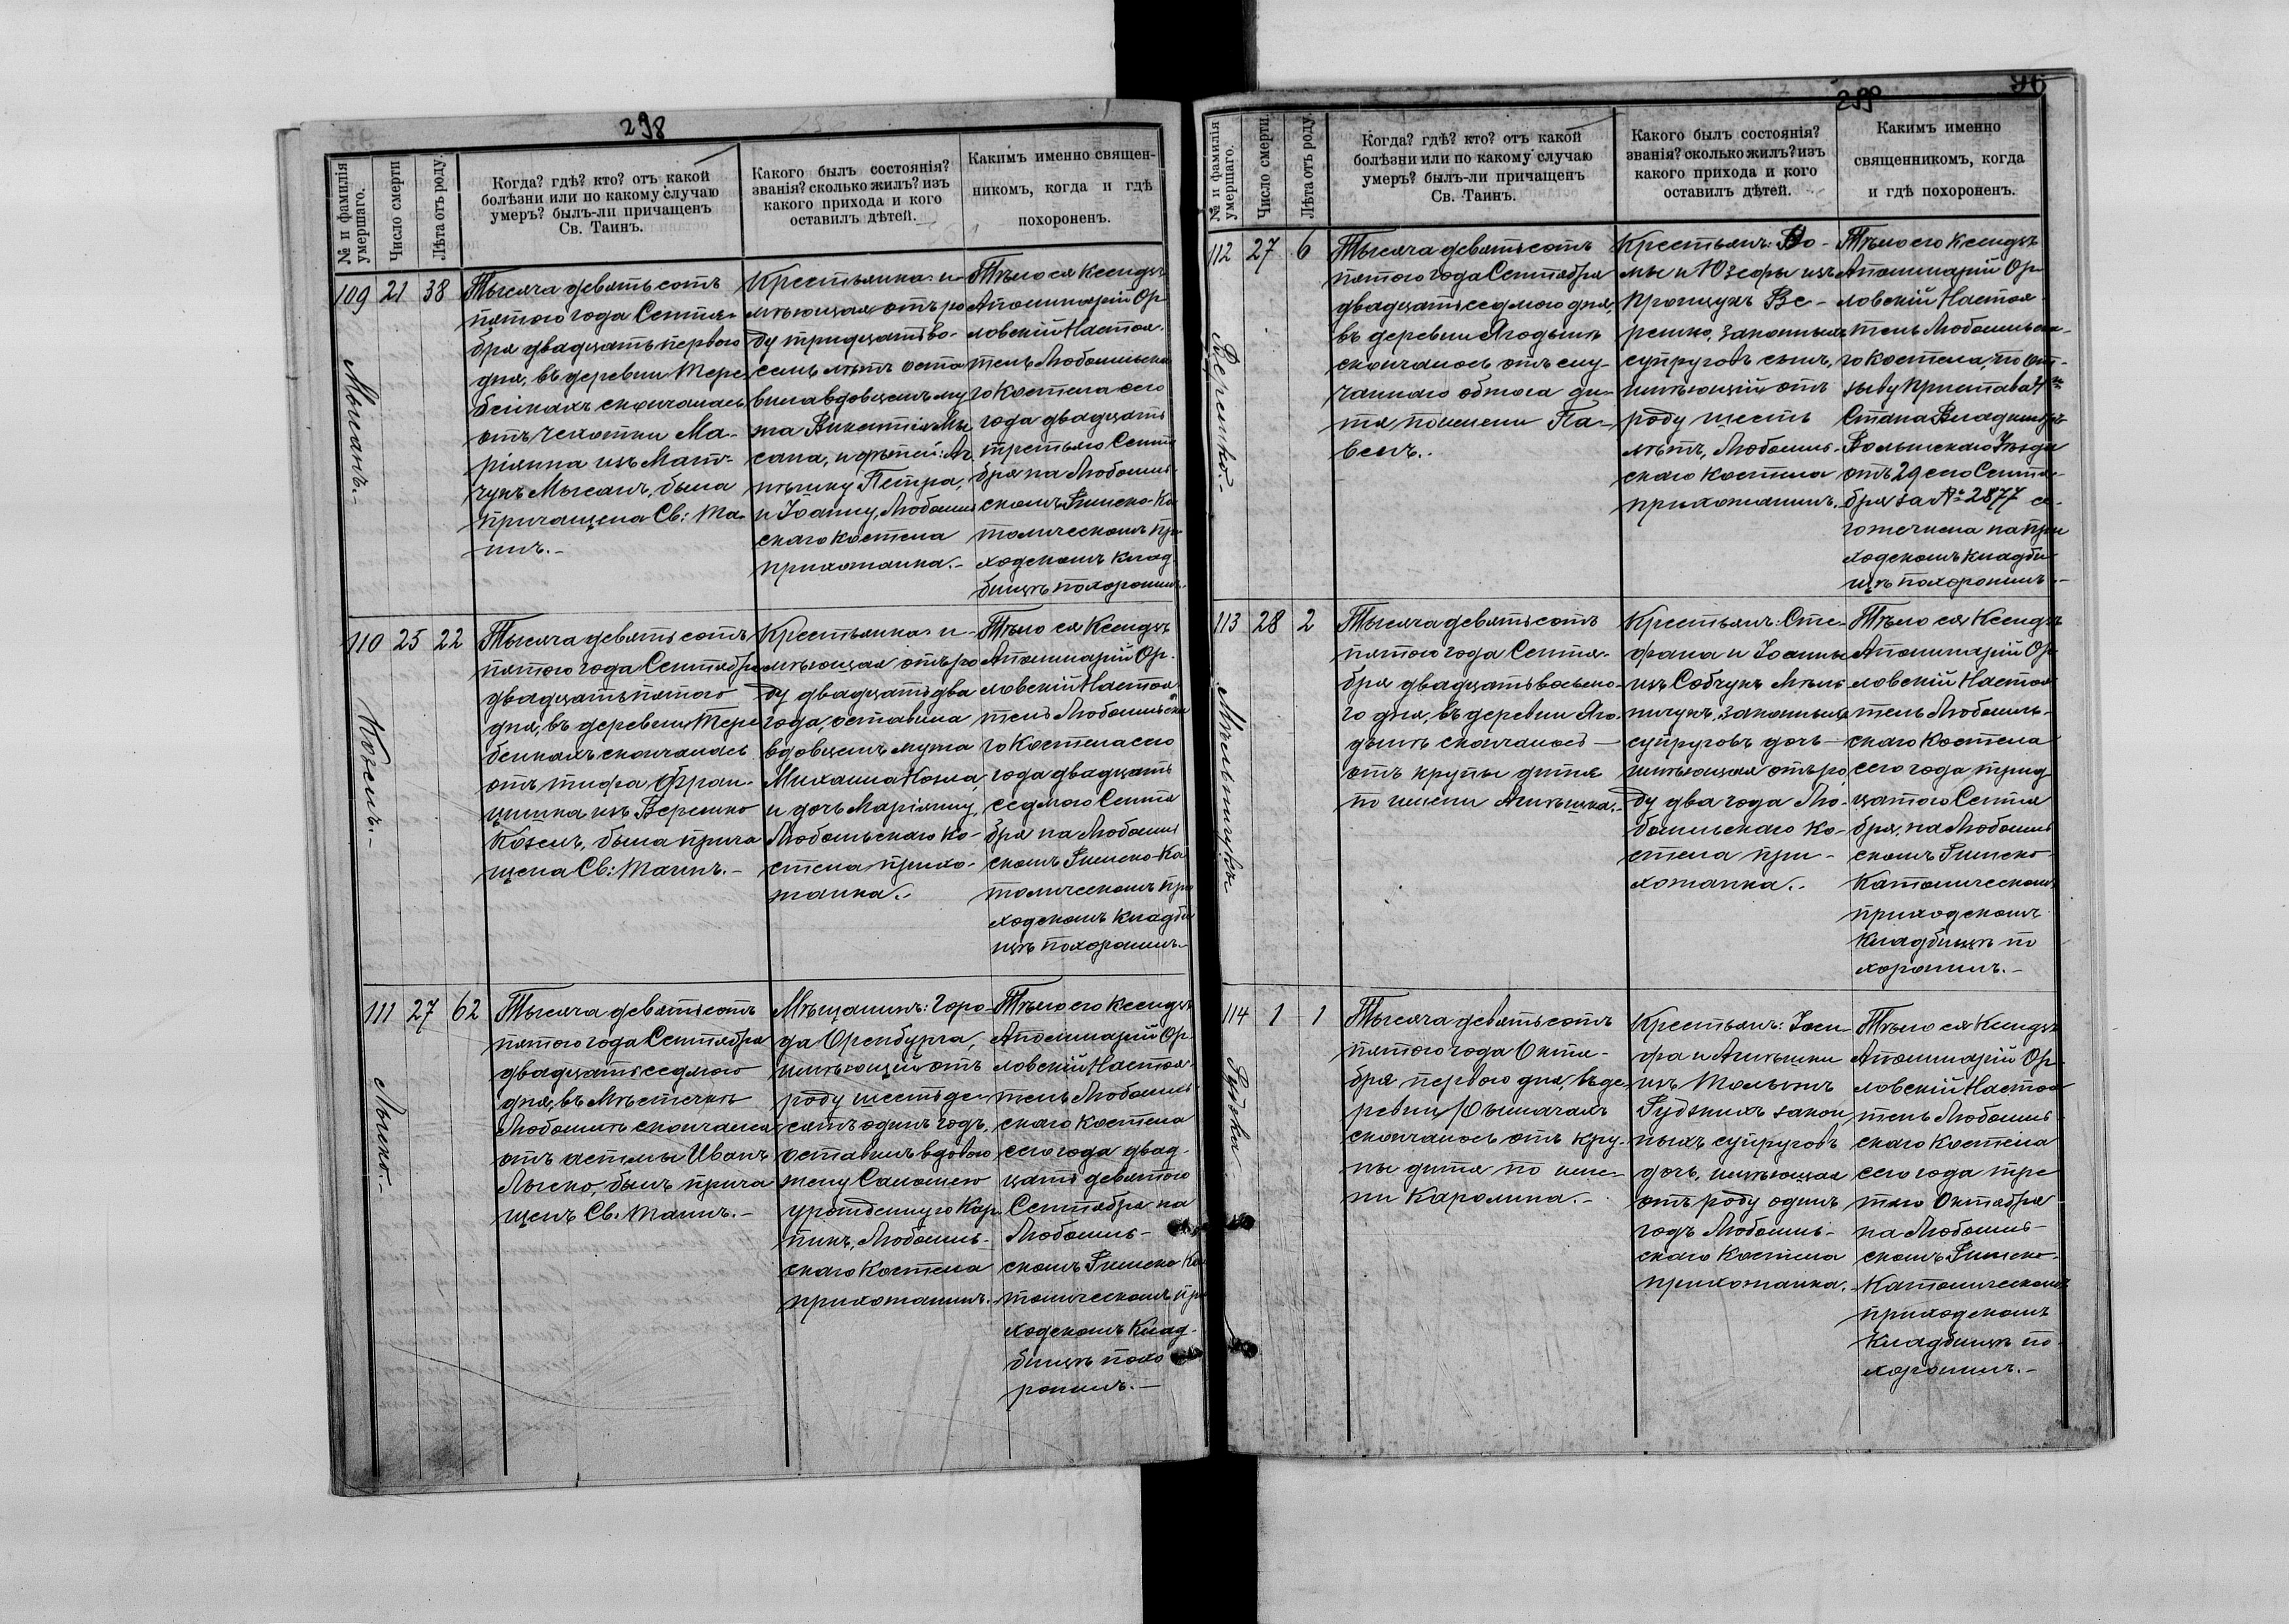 298
№ и фамилія умершаго.
Число смерти
Лѣта отъ роду.
Когда? гдѣ? кто? отъ какой
болѣзни или по какому случаю
умеръ? былъ-ли причащенъ
Св. Таинъ.
Какого былъ состоянія?
званія? сколько жилъ? изъ
какого прихода и кого
оставилъ дѣтей.
Какимъ именно священ-
никомъ, когда и гдѣ
похороненъ.
109
21
38
Тысяча девятьсотъ
пятого года Сентя-
бря двадцать первого
дня, въ деревни Тере
бейкахъ скончалась
отъ чехотки Ма-
ріянна изъ
Мысанъ, была
причащена Св: Та-
инъ.-
Крестьянка: и-
мѣющая отъ ро
ду тридцать во-
семь лѣтъ оста
вила вдовцемъ му
жа Викентія Мы
сана, и дѣтей: Аг
нѣшку, Петра,
и Іоанну, Любомль
скаго костела
прихожанка.-
Тѣло ея Ксендзъ
Аполинарій Ор-
ловскій Настоя-
тель Любомльска
го Костела сего
года двадцать
третьяго Сентя
бря на Любомль-
скомъ Римско-Ка
толическомъ при
ходскомъ клад
бищѣ похоронилъ.
110
25
22
Козелъ.-
Тысяча девятьсотъ
пятого года Сентября
двадцать пятого
дня, въ деревни Тере
бейкахъ скончалась
отъ тифа Фран-
цишка изъ Верешко
Козелъ, была прича
щена Св: Таинъ.-
Крестьянка: и-
мѣющая отъ ро
ду двадцать два
года, оставила
вдовцемъ мужа
Михаила Козла,
и дочь Маріянну,
Любомльскаго Ко-
стела прихо-
жанка.-
Тѣло ея Ксендзъ
Аполинарій Ор-
ловскій Настоя
тель Любомльска
го Костела сего
года двадцать
седмого Сентя
бря на Любомль
скомъ Римско-Ка
толическомъ при
ходскомъ кладби
щѣ похоронилъ.-
111
27
62
Лыско.-
Тысяча девятьсотъ
пятого года Сентября
двадцать седмого
дня, въ Мѣстечкѣ
Любомлѣ скончался
отъ астмы Иванъ
Лыско, былъ прича
щенъ Св. Таинъ.-
Мѣщанинъ: горо-
да Оренбурга,
имѣющій отъ
роду шестьде
сятъ одинъ годъ,
оставилъ вдовою
жену Саломею
урожденную Кар
пикъ, Любомль-
скаго Костела
прихожанинъ.-
Тѣло его Ксендзъ
Аполинарій Ор-
ловскій Настоя-
тель Любомль-
скаго Костела
сего года двад-
цать девятого
Сентября на
Любомль-
скомъ Римско Ка
толическомъ при
ходскомъ Клад-
бищѣ похо
ронилъ.-
299
96
№ и фамилія умершаго.
Число смерти.
Лѣта отъ роду.
Когда? гдѣ? кто? отъ какой
болѣзни или по какому случаю
умеръ? былъ-ли причащенъ
Св. Таинъ.
Какого былъ состоянія?
званія? сколько жилъ? изъ
какого прихода и кого
оставилъ дѣтей.
Какимъ именно
священникомъ, когда
и гдѣ похороненъ.
112
27
6
Верешко.-
Тысяча девятьсотъ
пятого года Сентября
двадцать седмого дня,
въ деревни Ягодынѣ
скончалось отъ слу-
чайнаго дитя
по имени Па-
велъ.
Крестьянъ:
и Юзефы изъ
Ве-
решко, законныхъ
супруговъ сынъ,
имѣющій отъ
роду шесть
лѣтъ, Любомль-
скаго Костела
прихожанинъ.
Тѣло его Ксендзъ
Аполинарій Ор-
ловскій Настоя-
тель Любомльска-
го Костела, по от-
зыву Пристава
Стана Владимиръ-
Волынскаго Уѣзда
отъ 29 сего Сентя-
бря за № 2877 се-
гожъ числа на при
ходскомъ кладби-
щѣ похоронилъ.-
113
28
2
Мельничукъ
Тысяча девятьсотъ
пятого года Сентя-
бря двадцать восьмо-
го дня, въ деревни Яго-
дынѣ скончалось
отъ крупы дитя
по имени Агнѣшка.-
Крестьянъ: Сте-
фана и Іоанны
изъ Собчукъ Мель-
ничукъ, законныхъ
супруговъ дочь
имѣющая отъ ро
ду два года Лю-
бомльскаго Ко-
стела при-
хожанка.-
Тѣло ея Ксендзъ
Аполинарій Ор-
ловскій Настоя
тель Любомль-
скаго Костела
сего года трид-
цатого Сентя
бря, на Любомль
скомъ Римско-
Католическомъ
приходскомъ
Кладбищѣ по
хоронилъ.-
114
1
1
Тысяча девятьсотъ
пятого года Октя-
бря первого дня, въ де
ревни
скончалось отъ кру-
пы дитя по име-
ни Каролина.-
Крестьянъ: Іоси-
фа и Агнѣшки
изъ
закон
ныхъ супруговъ
дочь, имѣющая
отъ роду одинъ
годъ Любомль-
скаго Костела
прихожанка.
Тѣло ея Ксендзъ
Аполинарій Ор-
ловскій Настоя
тель Любомль-
скаго Костела
сего года тре
тяго Октября
на Любомль-
скомъ Римско-
Католическомъ
приходскомъ
Кладбищѣ по-
хоронилъ.-